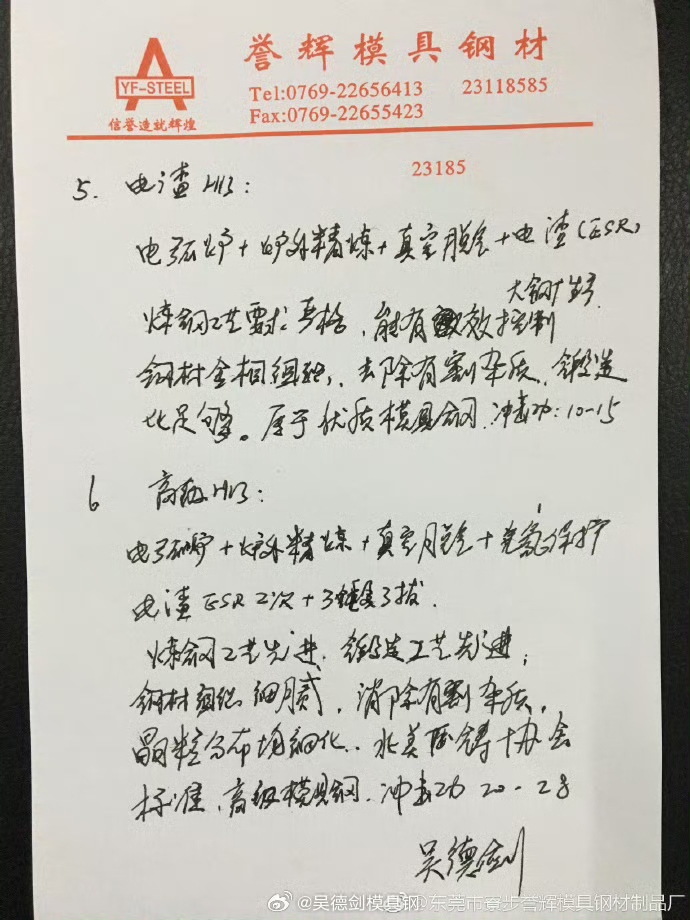 誉辉模具钢材
YF-STEEL
Tel:0769-22656413 23118585
Fax:0769-22655423
信誉造就辉煌
23185
5. 电渣H13:
电弧炉+炉外精炼+真空脱气+电渣(ESR)
大钢厂生产.
炼钢工艺要求严格,能有效控制
钢材金相组织,去除有害杂质,锻造
比足够。属于优质模具钢.冲击功:10-15
6 高级H13:
电弧炉+炉外精炼+真空脱气+充氩保护
电渣ESR 2次+3镦3拔.
炼钢工艺先进,锻造工艺先进;
钢材组织细腻,消除有害杂质,
晶粒分布均细化.北美压铸协会
标准,高级模具钢.冲击功20-28
吴德剑
@吴德剑模具钢 @东莞市寮步誉辉模具钢材制品厂